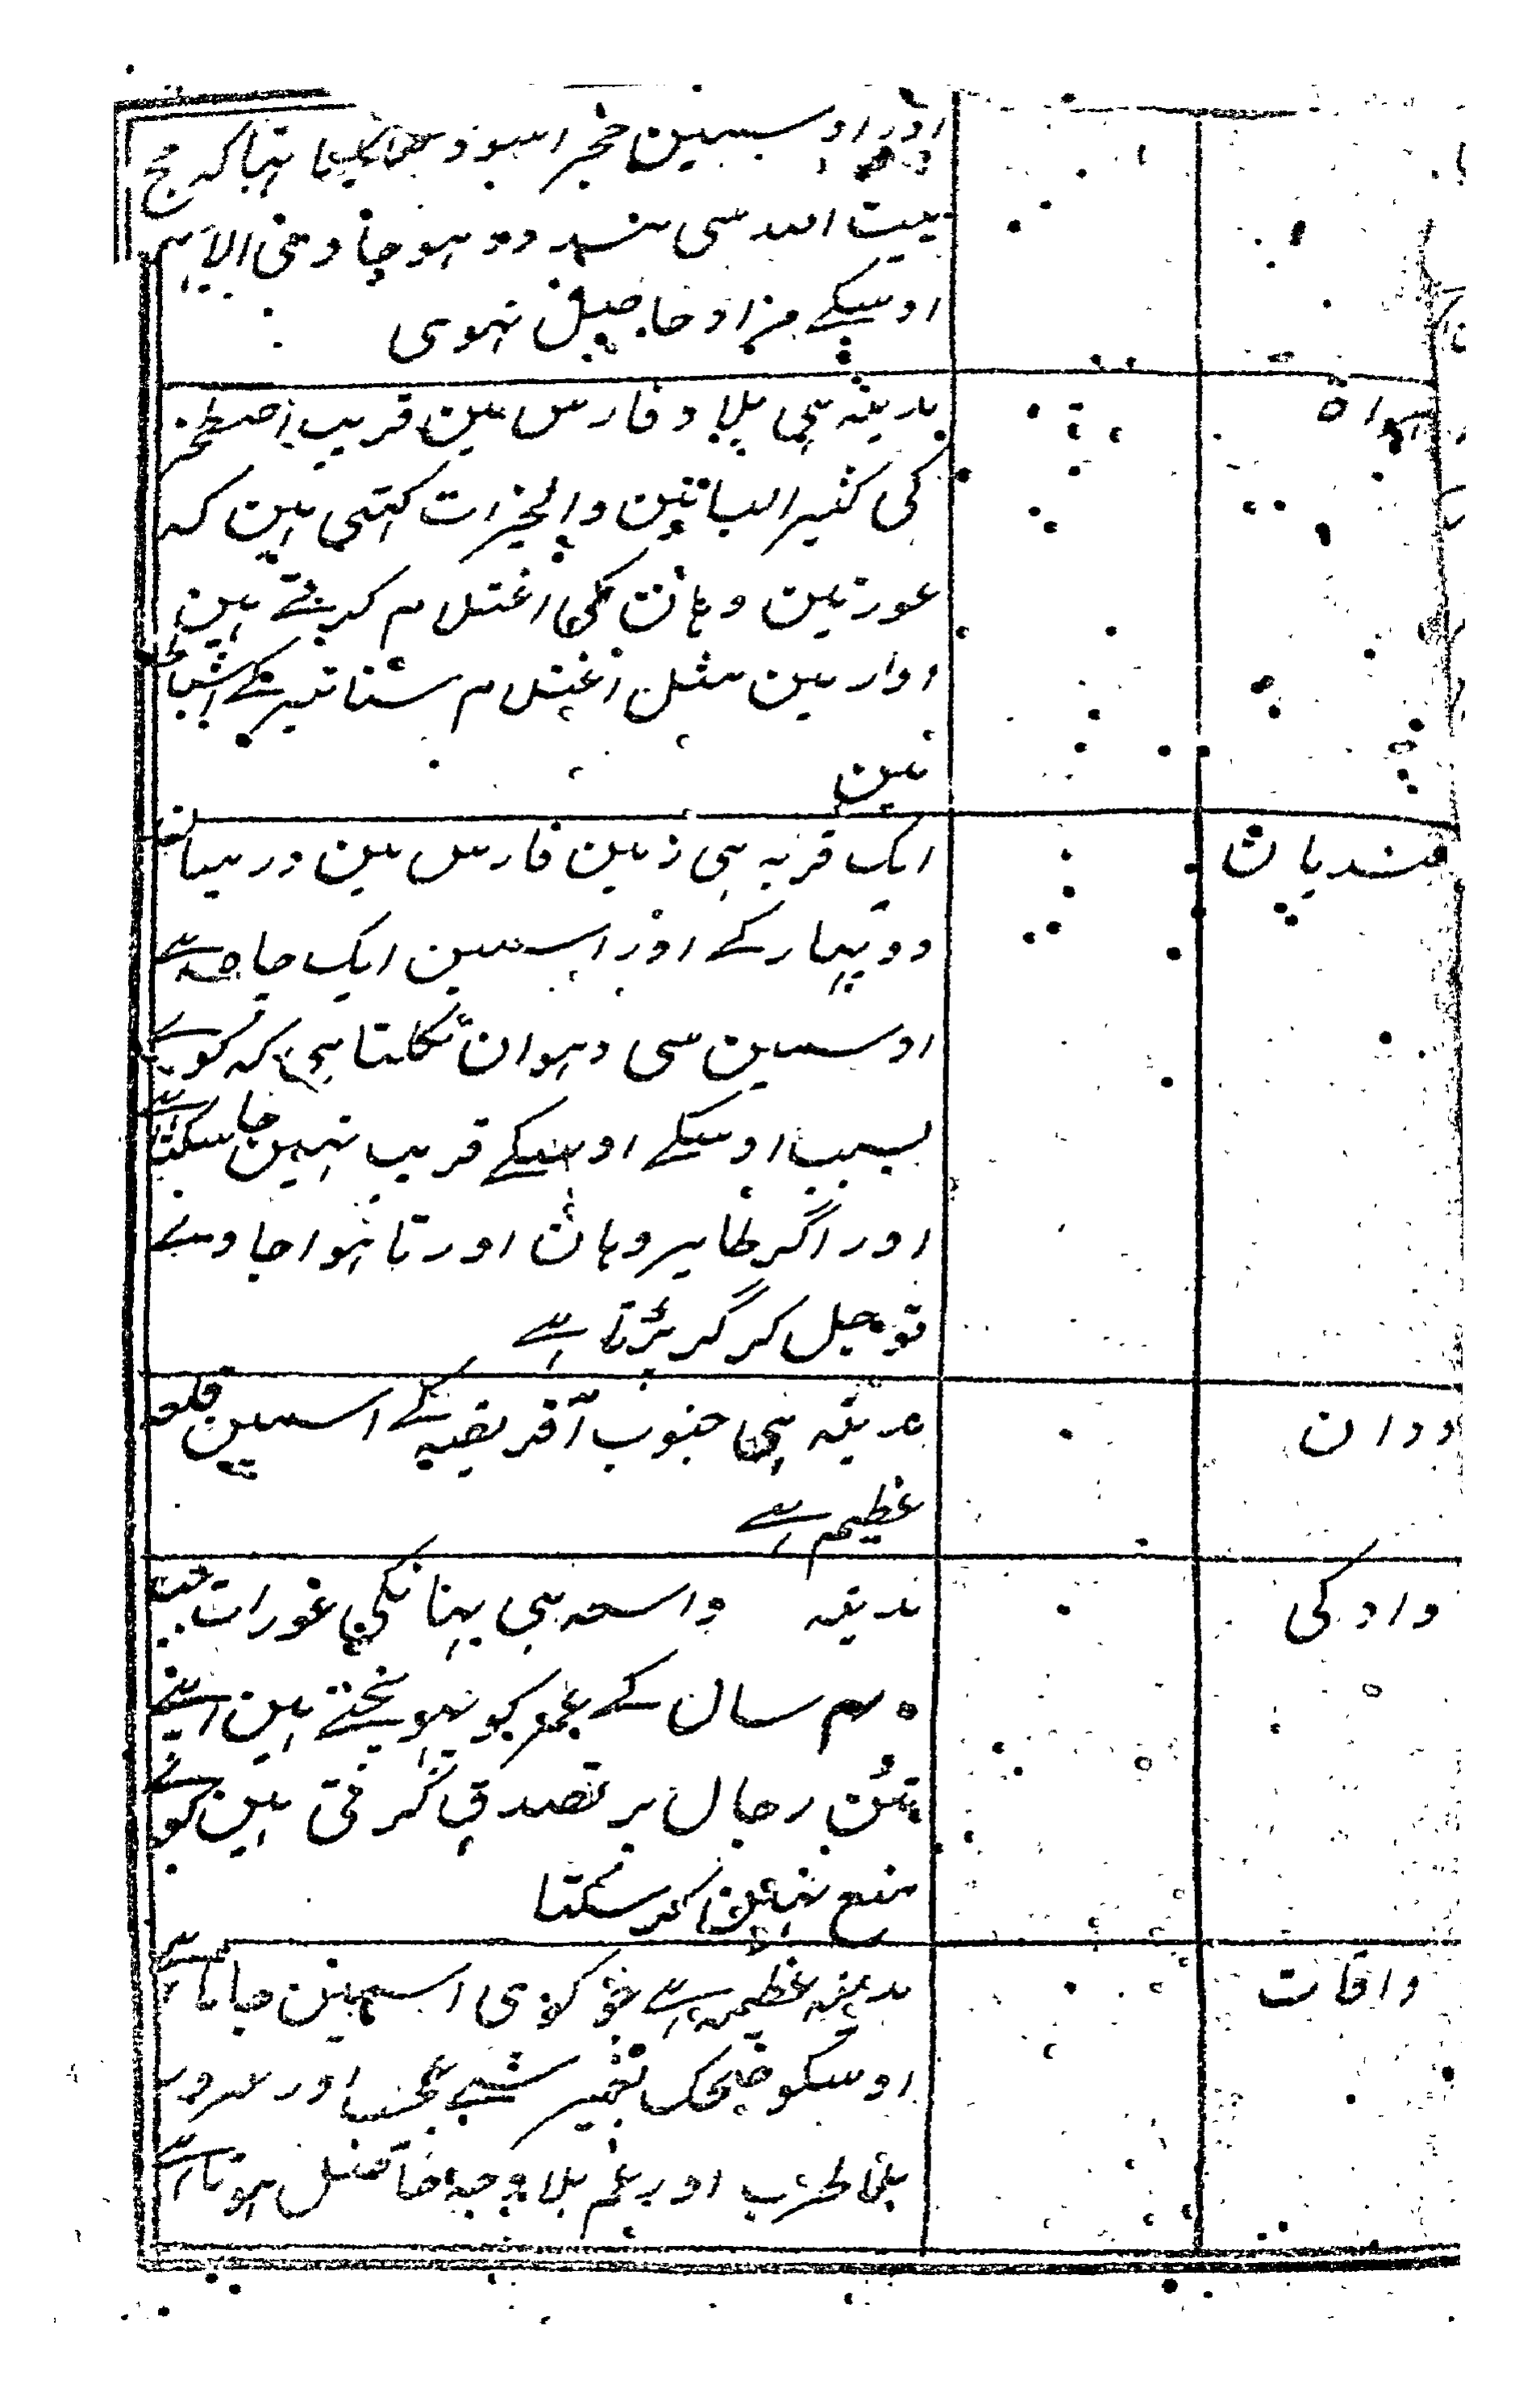 اور اوسمین حجر اسود تہا کہ حج
بیت اللہ سی ہو جاوی الا
اوسکے مراد حاصل نہوی
ہراة
مدینہ ہی بلاد فارس مین قریب اصطخر
کی کثیر البساتین والخیرات کہتی ہین کہ
عورتین وہان کی اغتلام کرتے ہین
مثل اغتلام سنانیر کے اشباط
مین
ہندیان
ایک قریہ ہی زمین فارس مین درمیان
دو پہار کے اور اسمین ایک چاہ ہے
اوسمین سی دہوان نکلتا ہی کہ کوئے
بسبب اوسکے اوسکے قریب نہین جا سکتا ہے
اور اگر طایر وہان اورتا ہوا جاوے
تو جل کر گر پڑتا ہے
ودان
مدینہ ہی جنوب آفریقیہ کے اسمین قلعہ
عظیم ہے
وادکی
مدینہ واسعہ ہی یہانکی عورات جب
سال کے عمر کو پہونچتے ہین اپنے
تئن رجال پر تصدق کرتی ہین کوئے
منع نہین کر سکتا
واقات
مدینہ عظیمہ ہے جو کوی اسمین جاتا ہے
اوسکو ضحک بغیر شے عجب اور سرور
بلا طرب اور غم بلا وجہ حاصل ہوتا ہے